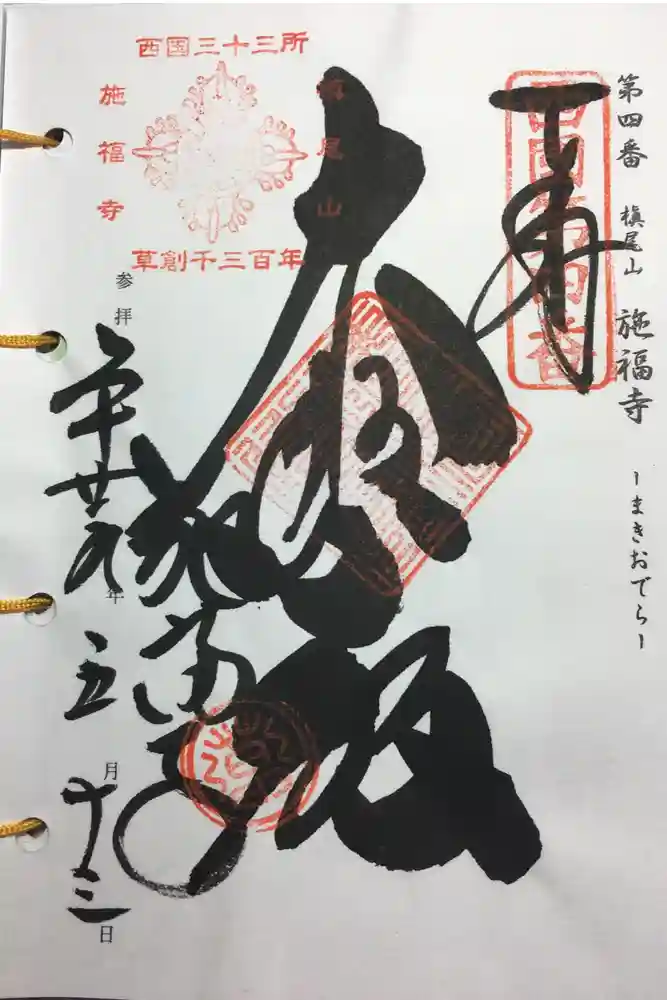 第四番 槇尾山 施福寺 ーまきおでらー
奉拝
西国第四番
西国三十三所
槇尾山
施福寺
草創千三百年
大悲殿
施福寺
参拝 平廿九年 五月 日